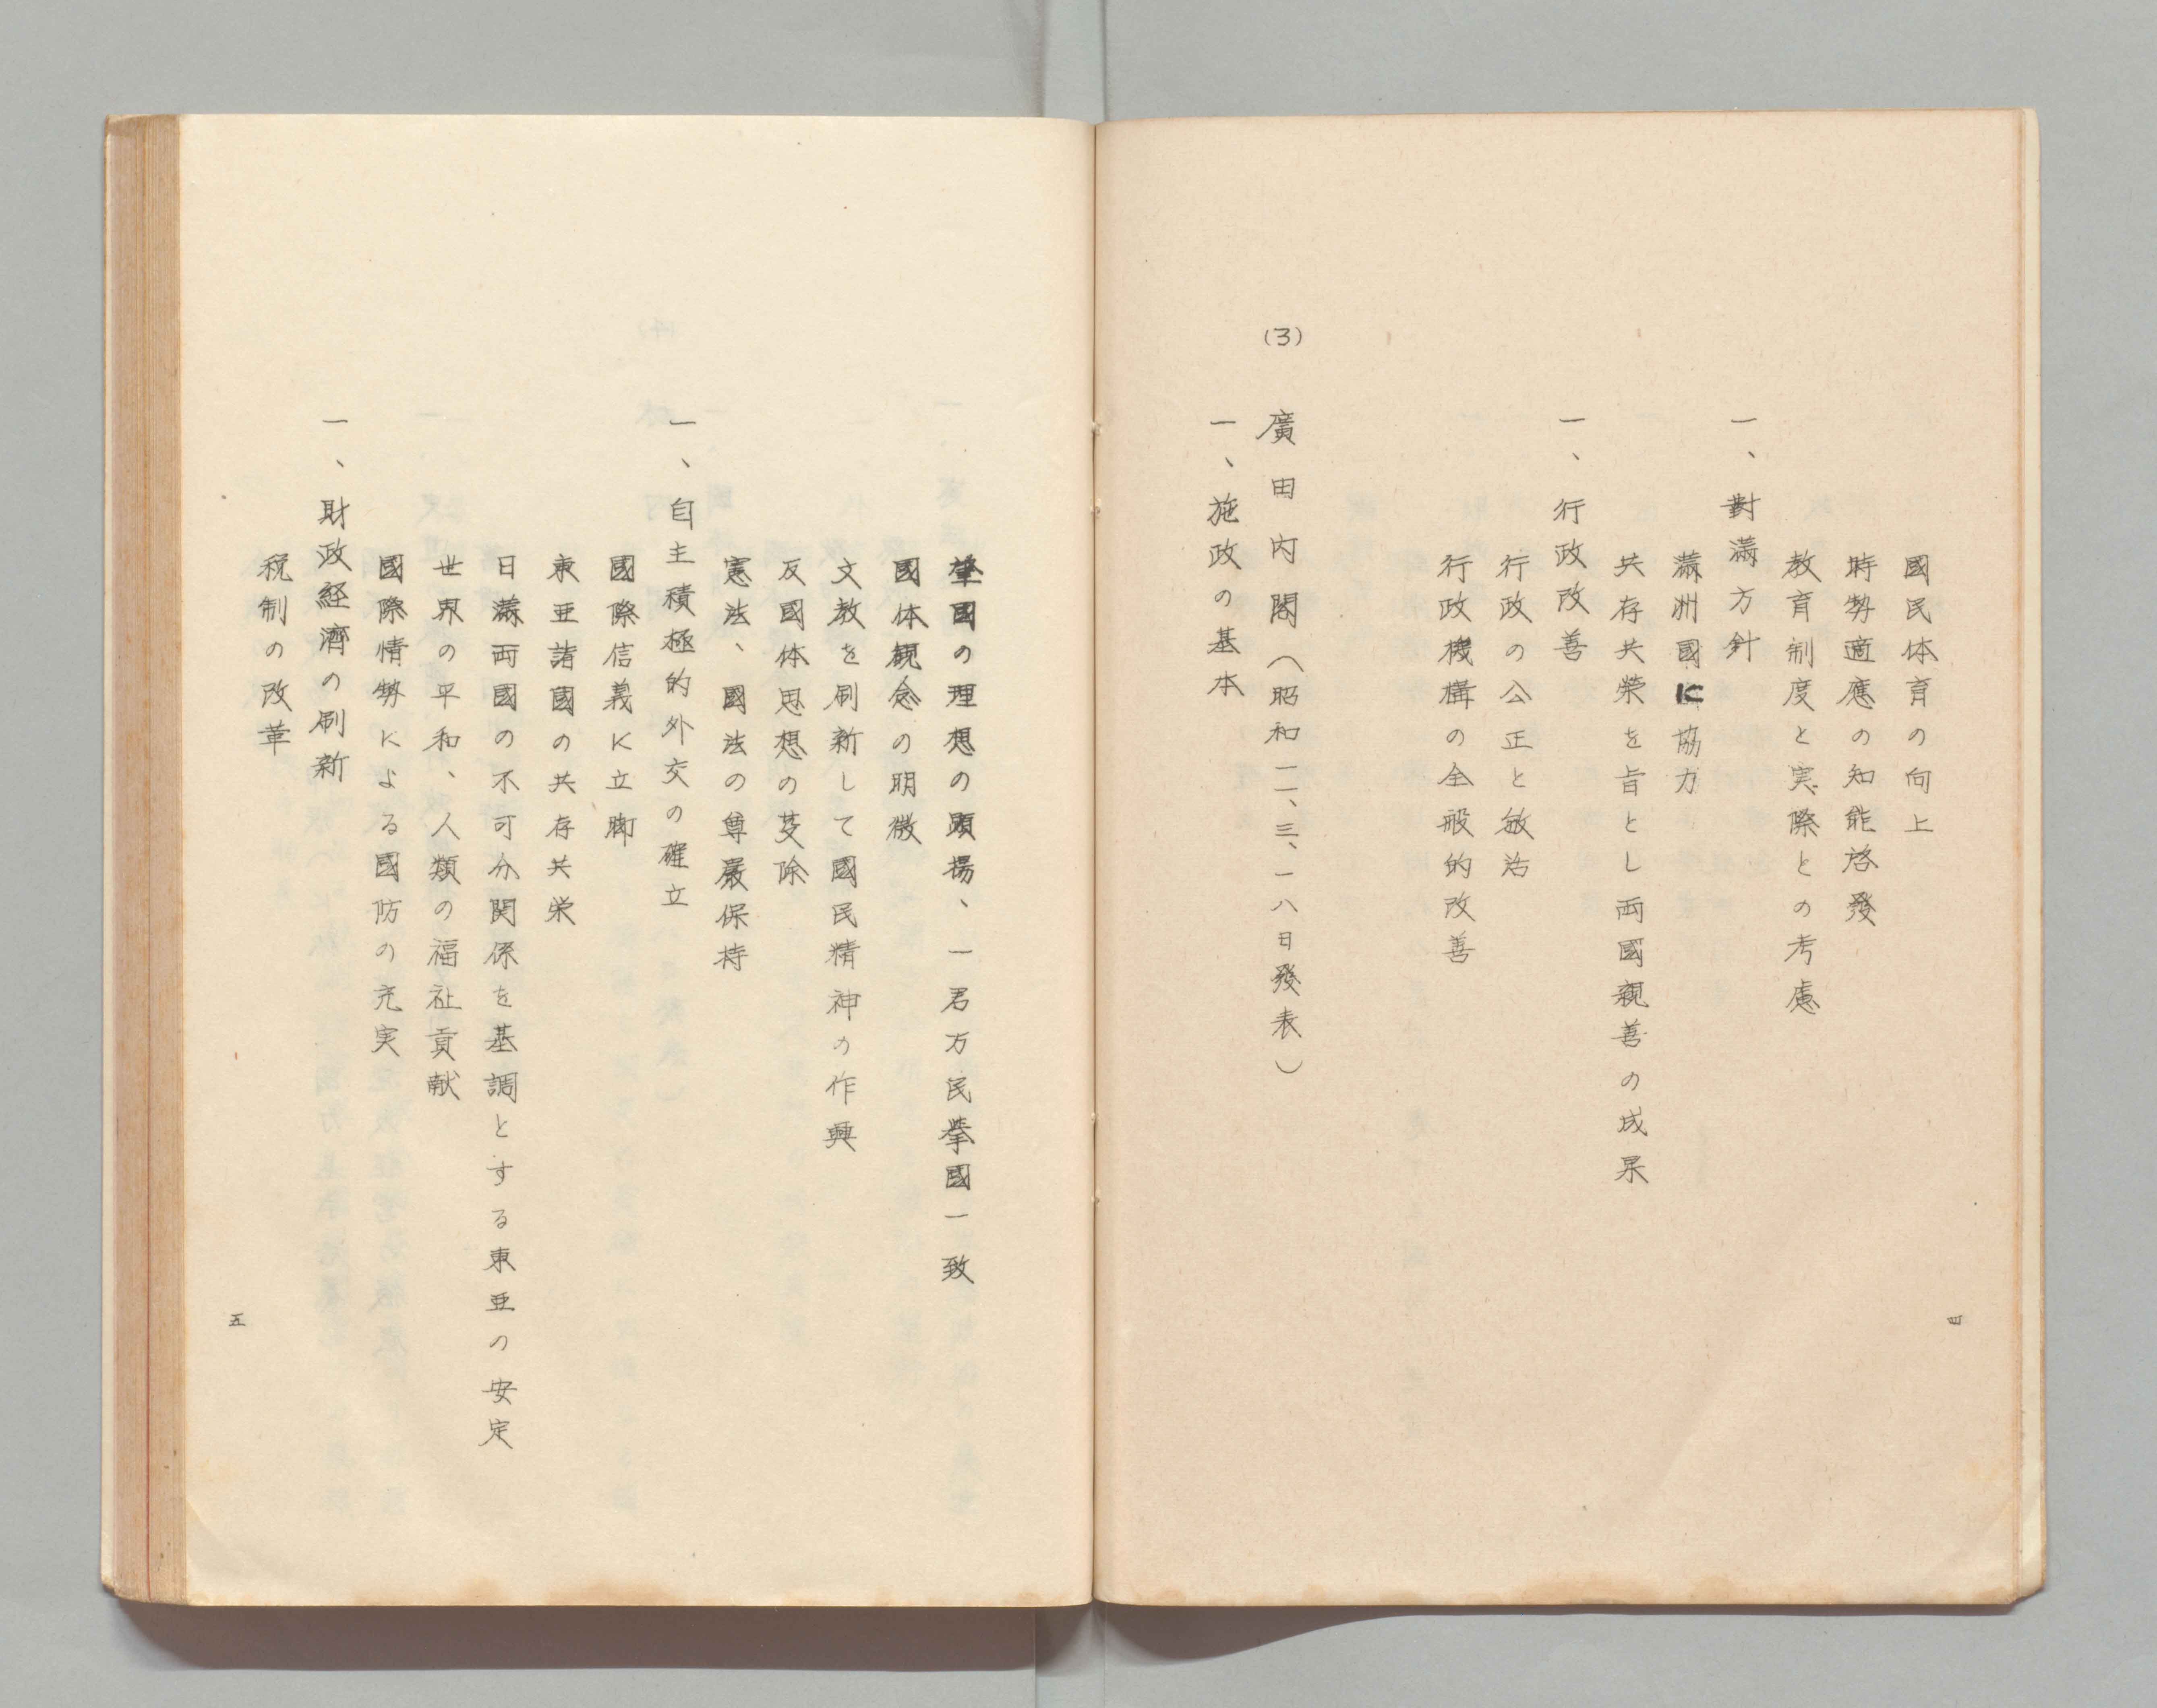 國民体育の向上
時勢適應の知能啓發
教育制度と実際との考慮
一、對滿方針
滿洲國に協力
共存共榮を旨とし両國親善の成果
一、行政改善
行政の公正と敏活
行政機構の全般的改善
(3) 廣田内閣（昭和一一、三、一八日發表）
一、施政の基本
四
肇國の理想の顕揚、一君万民挙國一致
國体観念の明徴
文教を刷新して國民精神の作興
反國体思想の芟除
憲法、國法の尊嚴保持
一、自主積極的外交の確立
國際信義に立脚
東亜諸國の共存共栄
日滿両國の不可分関係を基調とする東亜の安定
世界の平和、人類の福祉貢献
國際情勢による國防の充実
一、財政経濟の刷新
税制の改革
五